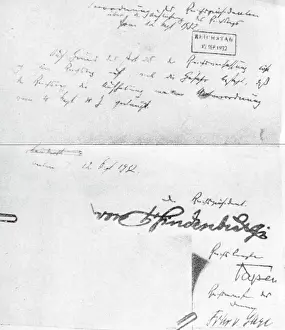 Verordnung des Reichspräsidenten
über die Auflösung des Reichstags
Vom 12. Sept 1932
REICHSTAG
SEP. 1932
Auf Grund des Art. 25 der Reichsverfassung löse
ich den Reichstag auf, weil die Gefahr besteht, daß
der Reichstag die Aufhebung meiner Notverordnung
vom 4 Sept d J verlangt
12 Sept 1932
Der Reichspräsident
von Hindenburg
Reichskanzler
Papen
Reichsminister des
Innern
Frhr v Gayl